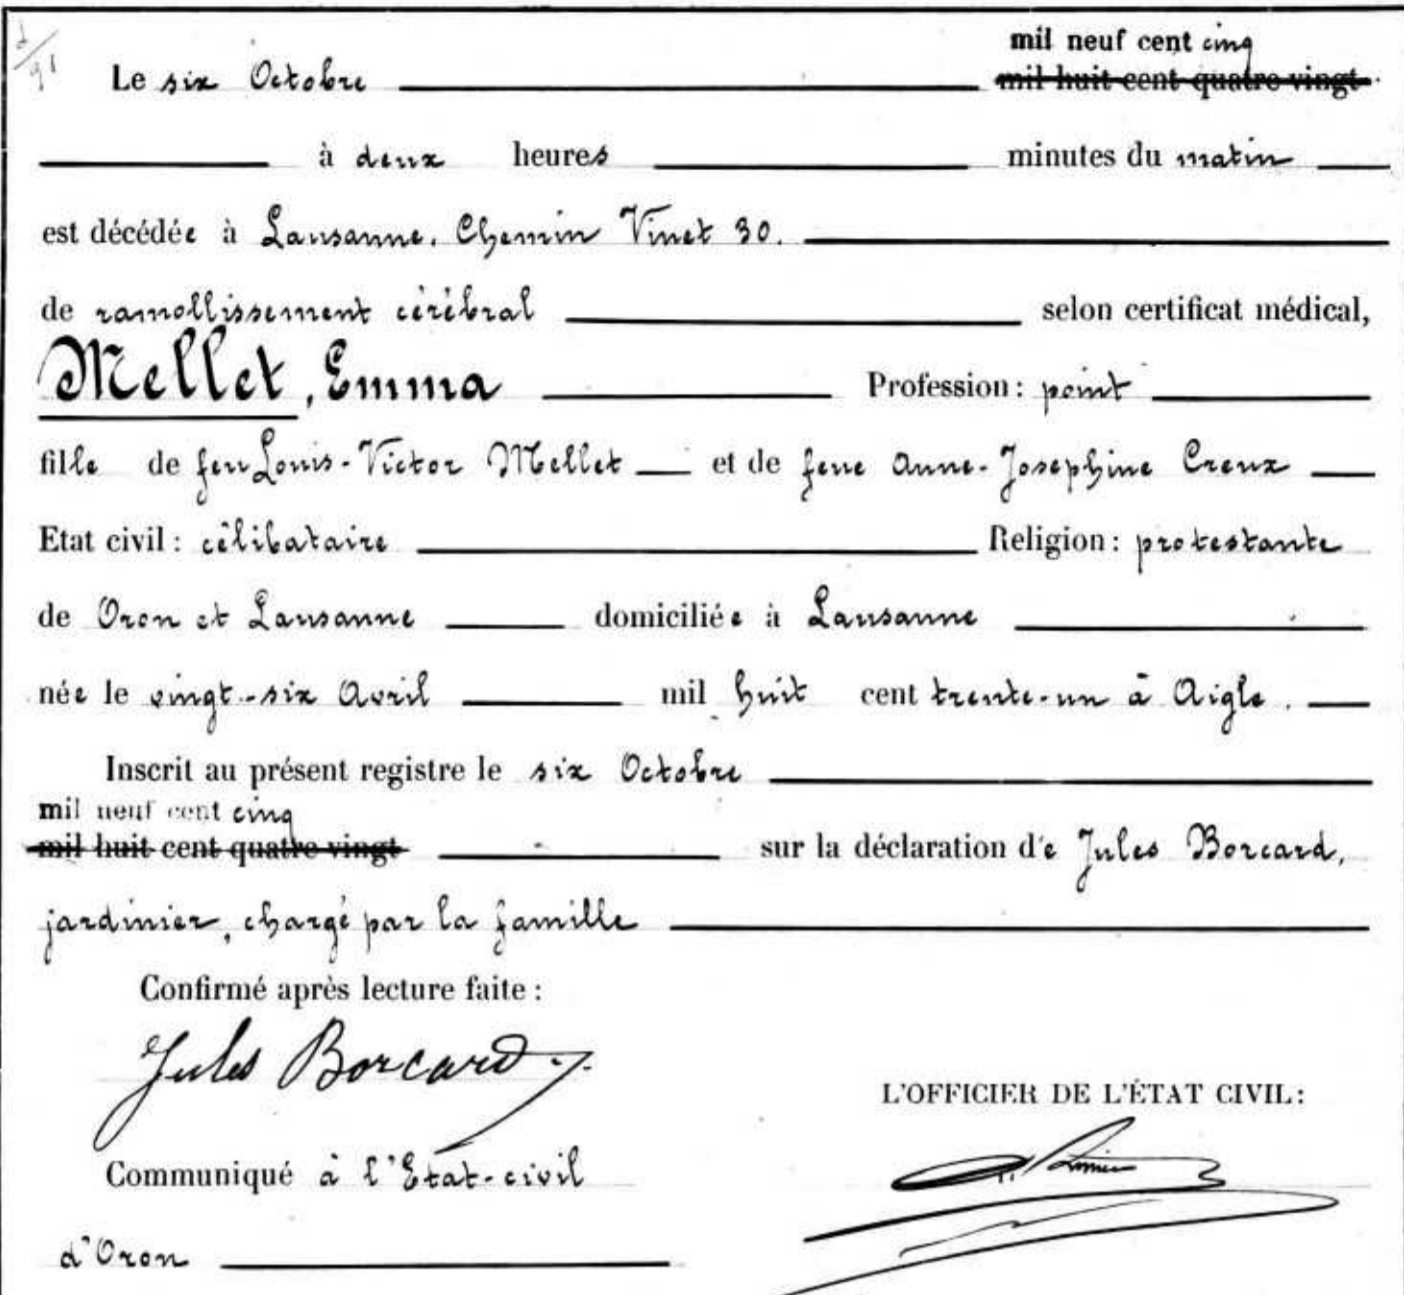 mil neuf cent cinq
Le six Octobre mil huit cent quatre-vingt
à deux heures minutes du matin
est décédée à Lausanne, Chemin Vinet 30.
de ramollissement cérébral selon certificat médical,
Mellet, Emma Profession : point
fille de feu Louis-Victor Mellet et de feue Anne-Josephine Creux
Etat civil : célibataire Religion : protestante
de Oron et Lausanne domiciliée à Lausanne
née le vingt-six Avril mil huit cent trente-un à Aigle.
Inscrit au présent registre le six Octobre
mil neuf cent cinq
mil huit cent quatre vingt sur la déclaration de Jules Borcard,
jardinier, chargé par la famille
Confirmé après lecture faite :
Jules Borcard
L'OFFICIER DE L'ÉTAT CIVIL :
Communiqué à l'Etat-civil
d'Oron